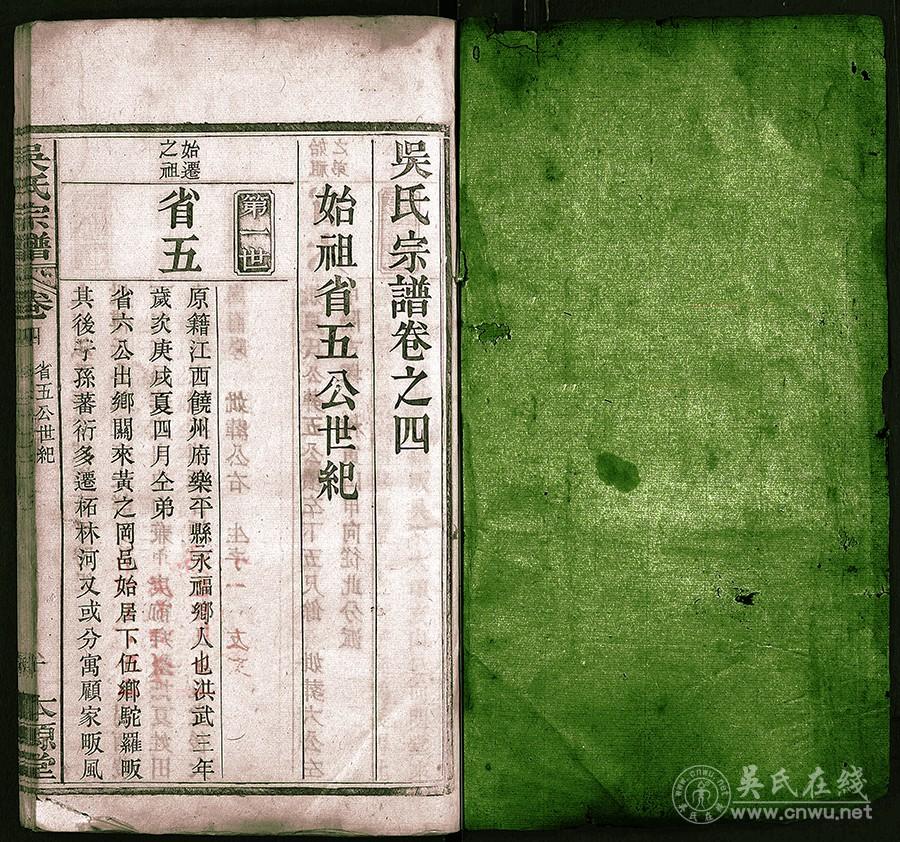 吳氏宗譜卷之四
始祖省五公世紀
第一世
始遷
之祖
省五
原籍江西饒州府樂平縣永福鄉人也洪武三年
歲次庚戌夏四月仝弟
省六公出鄉關來黃之岡邑始居下伍鄉駝羅畈
其後子孫蕃衍多遷柘林河又或分寓顧家畈風
吳氏宗譜
卷四
省五公世紀
本源堂
吴氏在线
www.cnwu.net